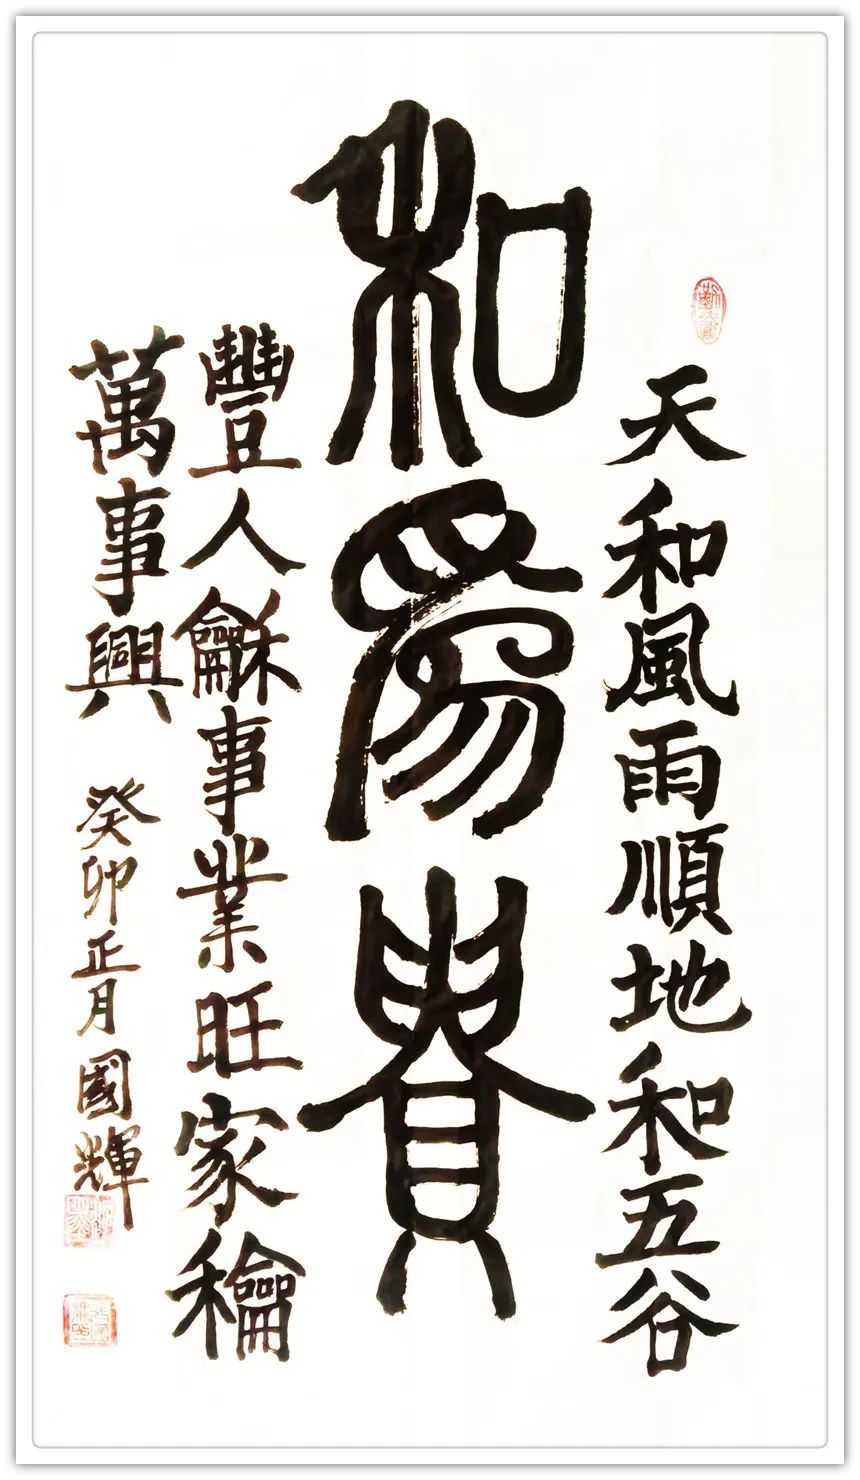 和為貴
天和風雨順地和五谷
豐人龢事業旺家龢
萬事興
癸卯正月國輝